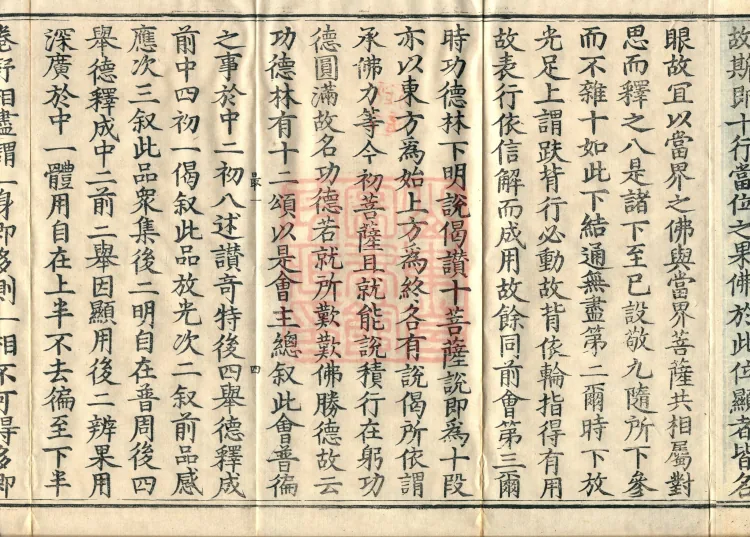 故斯即十行當位之果佛於此位顯者皆名
眼故冝以當界之佛與當界菩薩共相屬對
思而釋之八是諸下至已設敬九隨所下參
而不雜十如此下結通無盡第二爾時下放
光足上謂趺背行必動故背依輪指得有用
故表行依信解而成用故餘同前會第三爾
時功德林下明說偈讚十菩薩說即爲十段
亦以東方爲始上方爲終各有說偈所依謂
承佛力等今初菩薩且就能說積行在躬功
德圓滿故名功德若就所歎歎佛勝德故云
功德林有十二頌以是會主總叙此會普徧
最一 四
之事於中二初八述讃奇特後四舉德釋成
前中四初一偈叙此品放光次二叙前品感
應次三叙此品衆集後二明自在普周後四
舉德釋成中二前二舉因顯用後二辨果用
深廣於中一體用自在上半不去徧至下半
卷舒相盡謂一身即多則一相不可得多即